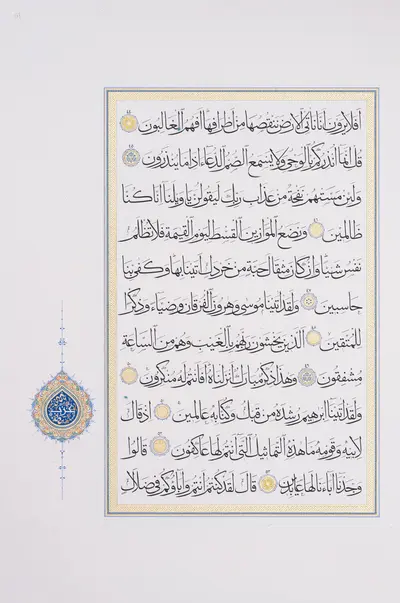 أفلا يرون أنا نأتي الأرض ننقصها من أطرافها أفهم الغالبون
قل إنما أنذركم بالوحي ولا يسمع الصم الدعاء إذا ما ينذرون
ولئن مستهم نفحة من عذاب ربك ليقولن يا ويلنا إنا كنا
ظالمين ونضع الموازين القسط ليوم القيمة فلا تظلم
نفس شيئا وإن كان مثقال حبة من خردل أتينا بها وكفى بنا
حاسبين ولقد آتينا موسى وهرون الفرقان وضياء وذكرا
للمتقين الذين يخشون ربهم بالغيب وهم من الساعة
مشفقون وهذا ذكر مبارك أنزلناه أفأنتم له منكرون
ولقد آتينا إبرهيم رشده من قبل وكنا به عالمين إذ قال
لأبيه وقومه ما هذه التماثيل التي أنتم لها عاكفون قالوا
وجدنا آباءنا لها عابدين قال لقد كنتم أنتم وآباؤكم في ضلال